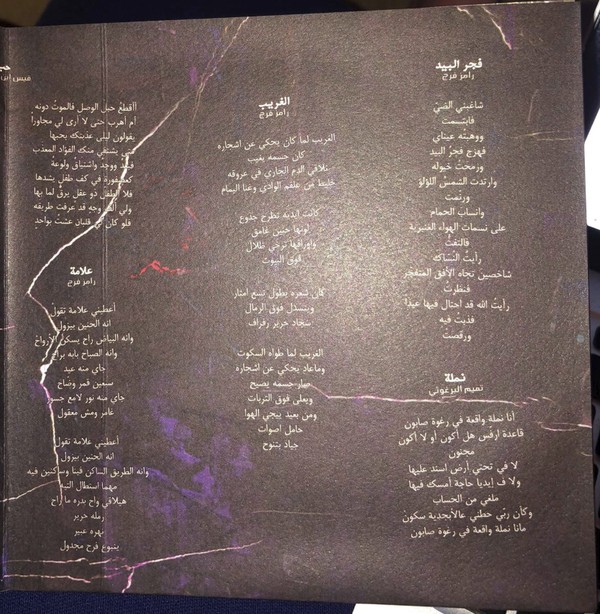 فجر البيد
رامز فرح
شاغبني الضيّ
فابتسمت
ووهبته عيناي
فهزج فجرُ البيد
ورمحتْ خيوله
وارتدت الشمسُ اللؤلؤ
ورنّمت
وانسابَ الحمام
على نسمات الهواء العنبرية
فالتفتُّ
رأيتُ النسّاكه
شاخصين تجاه الأفق المتفجر
فنظرتُ
رأيتُ الله قد احتال فيها عيداً
فذبتُ فيه
ورقصتُ
نملة
تميم البرغوثي
أنا نملة واقعة في رغوة صابون
قاعدة ارفس هل أكون أو لا أكون
مجنون
لا في تحتي أرض اسند عليها
ولا ف إيديا حاجة امسك فيها
ملغي من الحساب
وكأن ربّي حطني عالأبجدية سكون
مانا نملة واقعة في رغوة صابون
الغريب
رامز فرح
الغريب لما كان يحكي عن اشجاره
كان جسمه يغيب
تلاقي الدم الجاري في عروقه
خليط من علقم الوادي وغنا اليمام
كانت ايديه تطرح جذوع
لونها حنين غامق
واوراقها ترخي ظلال
فوق البيوت
كان شعره يطول تسع امتار
وينسدل فوق الرمال
سجاد حرير رفراف
الغريب لما طواه السكوت
وماعاد يحكي عن اشجاره
صار جسمه يصيح
ويعلى فوق التربات
ومن بعيد ييجي الهوا
حامل اصوات
جياد بتنوح
أأقطعُ حبل الوصل فالموتُ دونه
أم أهرب حتى لا أرى لي مجاوراً
يقولون ليلى عذبتك بحبها
يشتفي منك الفؤاد المعذب
ووجد واشتياق ولوعة
كعصفورة في كف طفل يشدها
فلا الطفل ذو عقل يرقّ لما بها
ولي ألف وجه قد عرفت طريقه
فلو كان لي قلبان عشتُ بواحدٍ
علامة
رامز فرح
أعطيني علامة تقولْ
انه الحنين بيزول
وانه البياض راح يسكن الأرواحْ
وانه الصباح بابه براح
جاي منه عيد
سبعين قمر وضاح
جاي منه نور لامع
عامر ومش معقول
أعطيني علامة تقول
انه الحنين بيزول
وانه الطريق الساكن فينا وساكنين فيه
مهما استطال التيه
هيلاقي واح بدره ما راح
رمله حرير
نهره عبير
ينبوع فرح مجدول